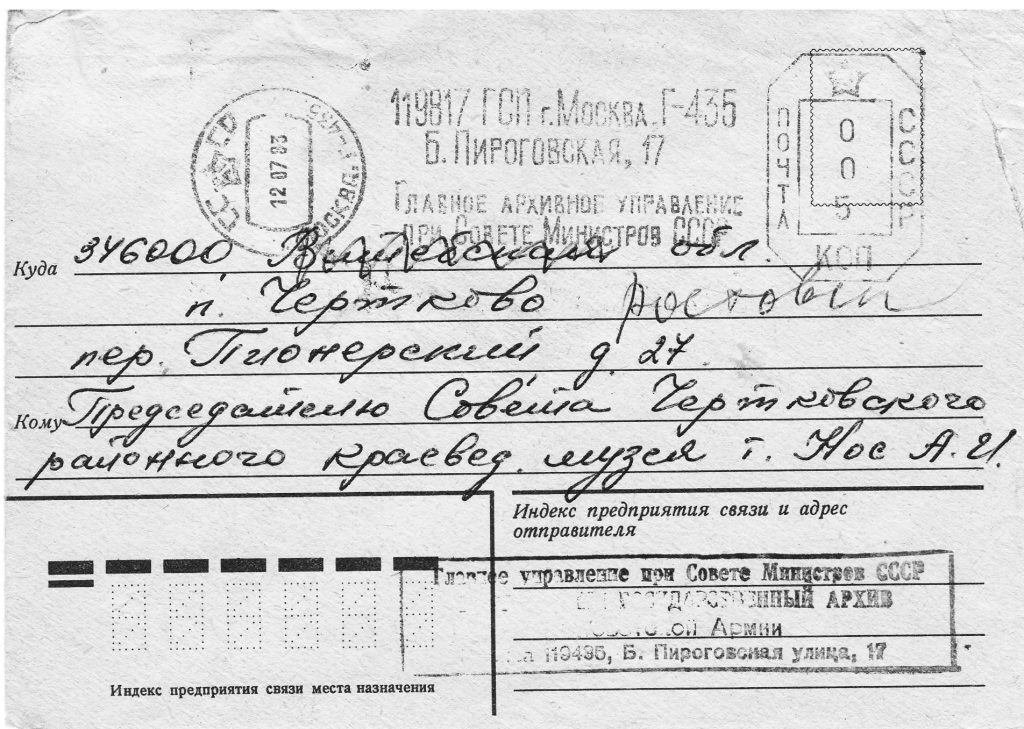 119817 ГСП г. Москва, Г-435
Б. Пироговская, 17
Главное архивное управление
при Совете Министров СССР
СССР
12 07 83
Москва Г-435
ПОЧТА
СССР
005
КОП
Куда 346000 обл.
п. Чертково Ростовск
пер. Пионерский д. 27.
Кому Председателю Совета Чертковского
районного краевед. музея т. Нос А. И.
Индекс предприятия связи и адрес
отправителя
Главное управление при Совете Министров СССР
ГОСУДАРСТВЕННЫЙ АРХИВ
Советской Армии
119435, Б. Пироговская улица, 17
Индекс предприятия связи места назначения